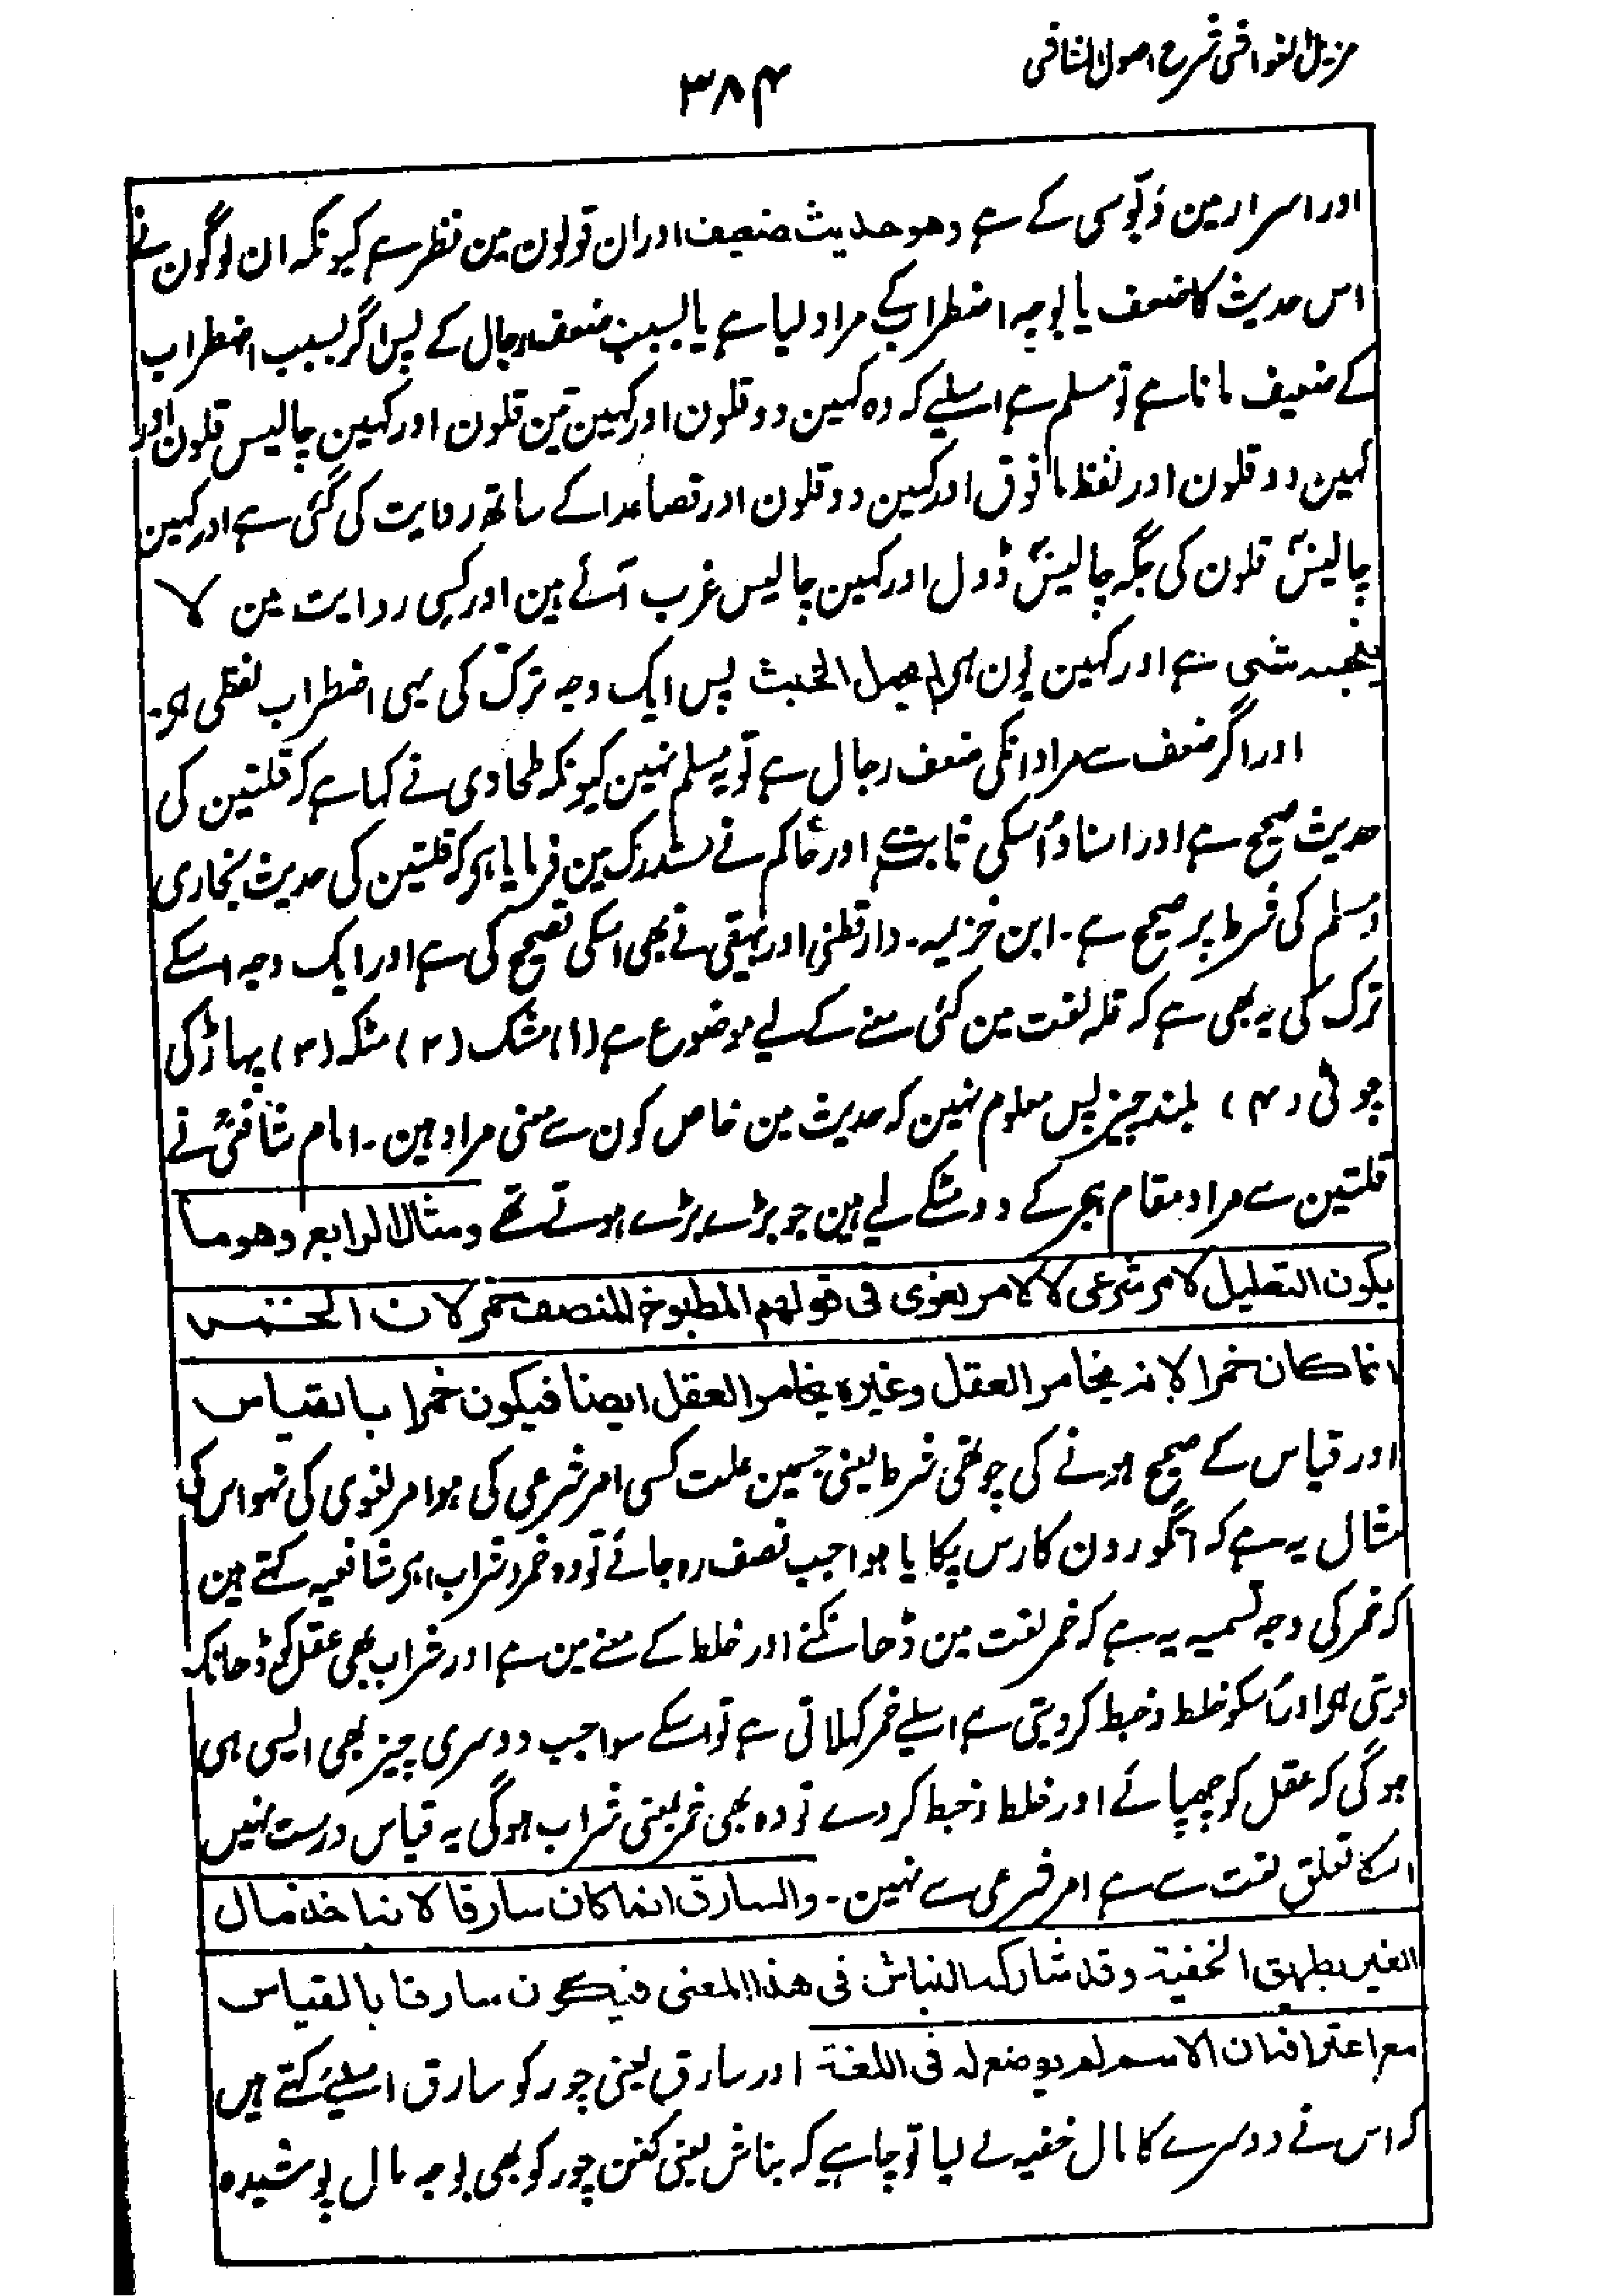 مزیل الغواشی شرح اصول الشاشی
۳۸۴
اور اسرار مین دَبّوسی کے ہے وهو حدیث ضعیف اور ان قولون مین نظر ہے کیونکہ ان لوگون نے
اس حدیث کا ضعف یا بوجہ اضطراب کے مراد لیا ہے یا بسبب ضعف رجال کے پس اگر بسبب اضطراب
کے ضعیف مانا ہے تو مسلم ہے اسلیے کہ وہ کہین دو قلون اور کہین تین قلون اور کہین چالیس قلون اور
کہین دو قلون اور لفظ ما فوق اور کہین دو قلون اور فصاعدا کے ساتھ روایت کی گئی ہے اور کہین
چالیس قلون کی جگہ چالیس ڈول اور کہین چالیس غرب آئے ہین اور کسی روایت مین لا
ینجسه شی ہے اور کہین یون ہی لم یحمل الخبث پس ایک وجہ ترک کی یہی اضطراب لفظی ہی۔
اور اگر ضعف سے مراد انکی ضعف رجال ہے تو یہ مسلم نہین کیونکہ طحاوی نے کہا ہے کہ قلتین کی
حدیث صحیح ہے اور اسناد اُسکی ثابت ہے اور حاکم نے مستدرک مین فرمایا ہی کہ قلتین کی حدیث بخاری
و مسلم کی شرط پر صحیح ہے۔ ابن خزیمہ۔ دارقطنی اور بیہقی نے بھی اسکی تصحیح کی ہے اور ایک وجہ اسکے
ترک کی یہ بھی ہے کہ قلہ لغت مین کئی معنے کے لیے موضوع ہے (۱) مشک (۲) مٹکہ (۳) پہاڑ کی
چوٹی (۴) بلند چیز پس معلوم نہین کہ حدیث مین خاص کون سے معنی مراد ہین۔ امام شافعیؒ نے
قلتین سے مراد مقام ہجر کے دو مٹکے لیے ہین جو بڑے بڑے ہوتے تھے ومثال الرابع وهو ما
یکون التعلیل لامر شرعی لا لامر لغوی فی قولهم المطبوخ المنصف خمر لان الخمر
انما کان خمرا لانه یخامر العقل وغیره یخامر العقل ایضا فیکون خمرا بالقیاس
اور قیاس کے صحیح ہونے کی چوتھی شرط یعنی جسمین علت کسی امر شرعی کی ہو امر لغوی کی نہو اس کی
مثال یہ ہے کہ انگورون کا رس پکایا ہوا جب نصف رہ جائے تو وہ خمر و شراب ہی شافعیہ کہتے ہین
کہ خمر کی وجہ تسمیہ یہ ہے کہ خمر لغت مین ڈھانکنے اور خلط کے معنے مین ہے اور شراب بھی عقل کو ڈھانک
دیتی ہی اور اُسکو خلط و خبط کر دیتی ہے اسلیے خمر کہلاتی ہے تو اسکے سوا جب دوسری چیز بھی ایسی ہی
ہوگی کہ عقل کو چھپائے اور خلط و خبط کر دے تو وہ بھی خمر یعنی شراب ہوگی یہ قیاس درست نہیں
اسکا تعلق لغت سے ہے امر شرعی سے نہین۔ والسارق انما کان سارقا لانه اخذ مال
الغیر بطریق الخفیة وقد شارکه النباش فی هذا المعنی فیکون سارقا بالقیاس
مع اعترافه ان الاسم لم یوضع له فی اللغة اور سارق یعنی چور کو سارق اسلیے کہتے ہیں
کہ اس نے دوسرے کا مال خفیہ لے لیا تو چاہیے کہ نباش یعنی کفن چور کو بھی بوجہ مال پوشیدہ